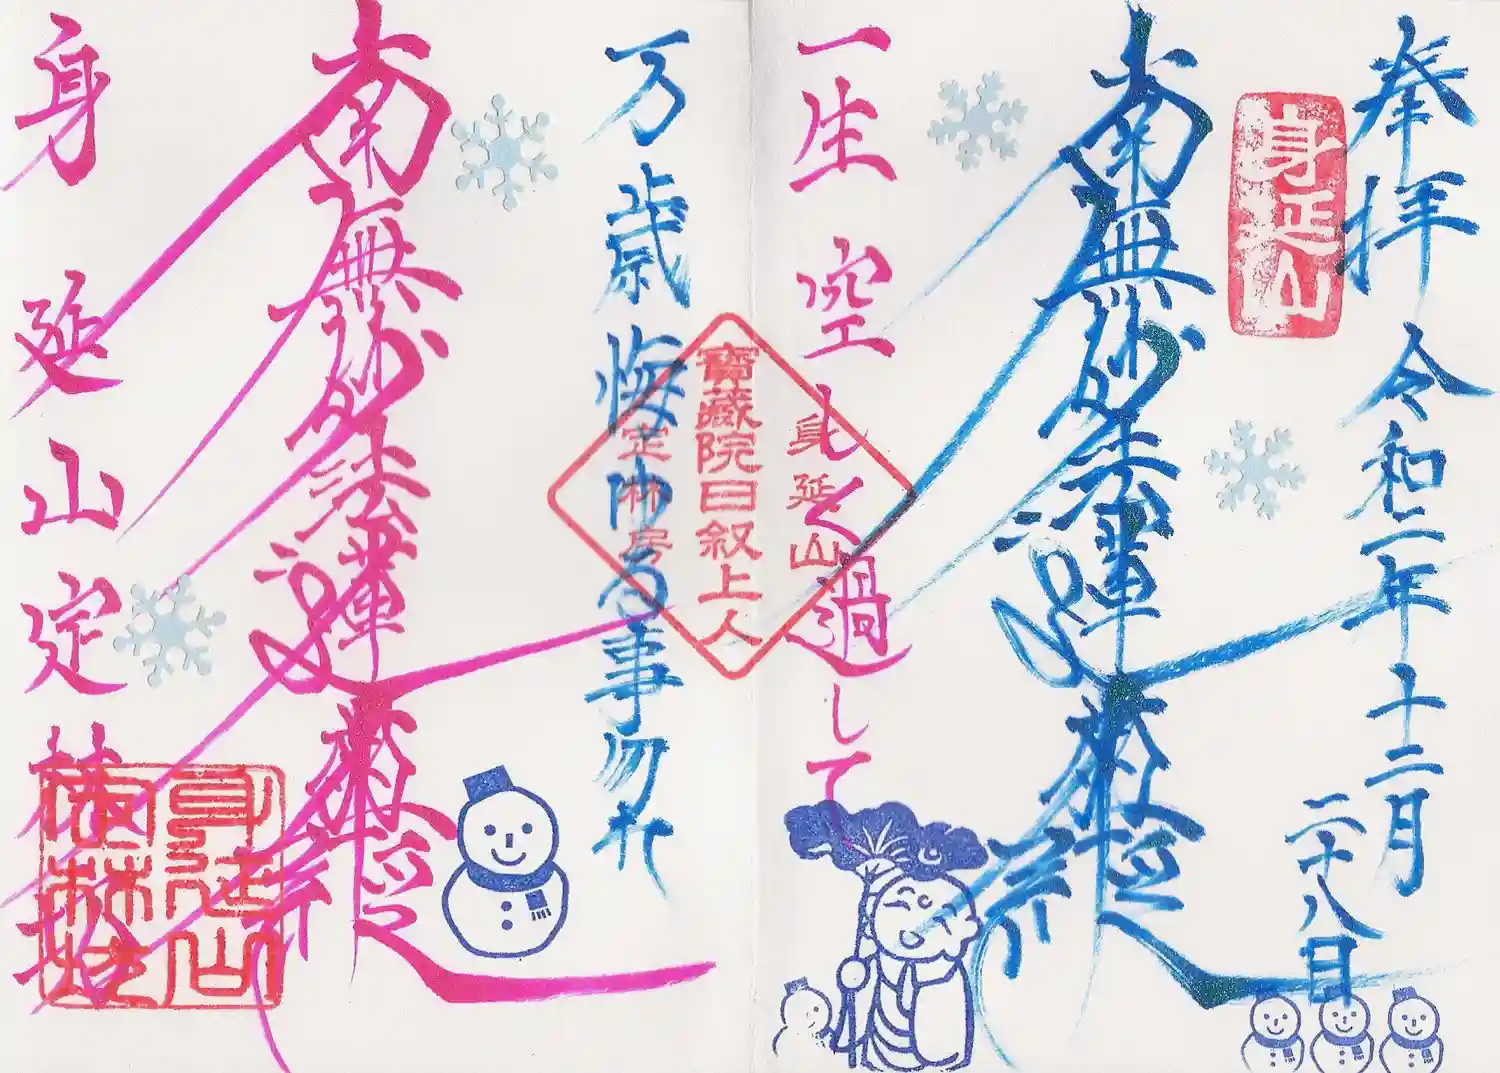 奉拝 令和二年十二月
二十八日
身延山
南無妙法蓮華経
一生空しく過して
身延山
寶蔵院日叙上人
定林房
万歳悔ゆる事勿れ
南無妙法蓮華経
身延山定林坊
身延山
定林坊